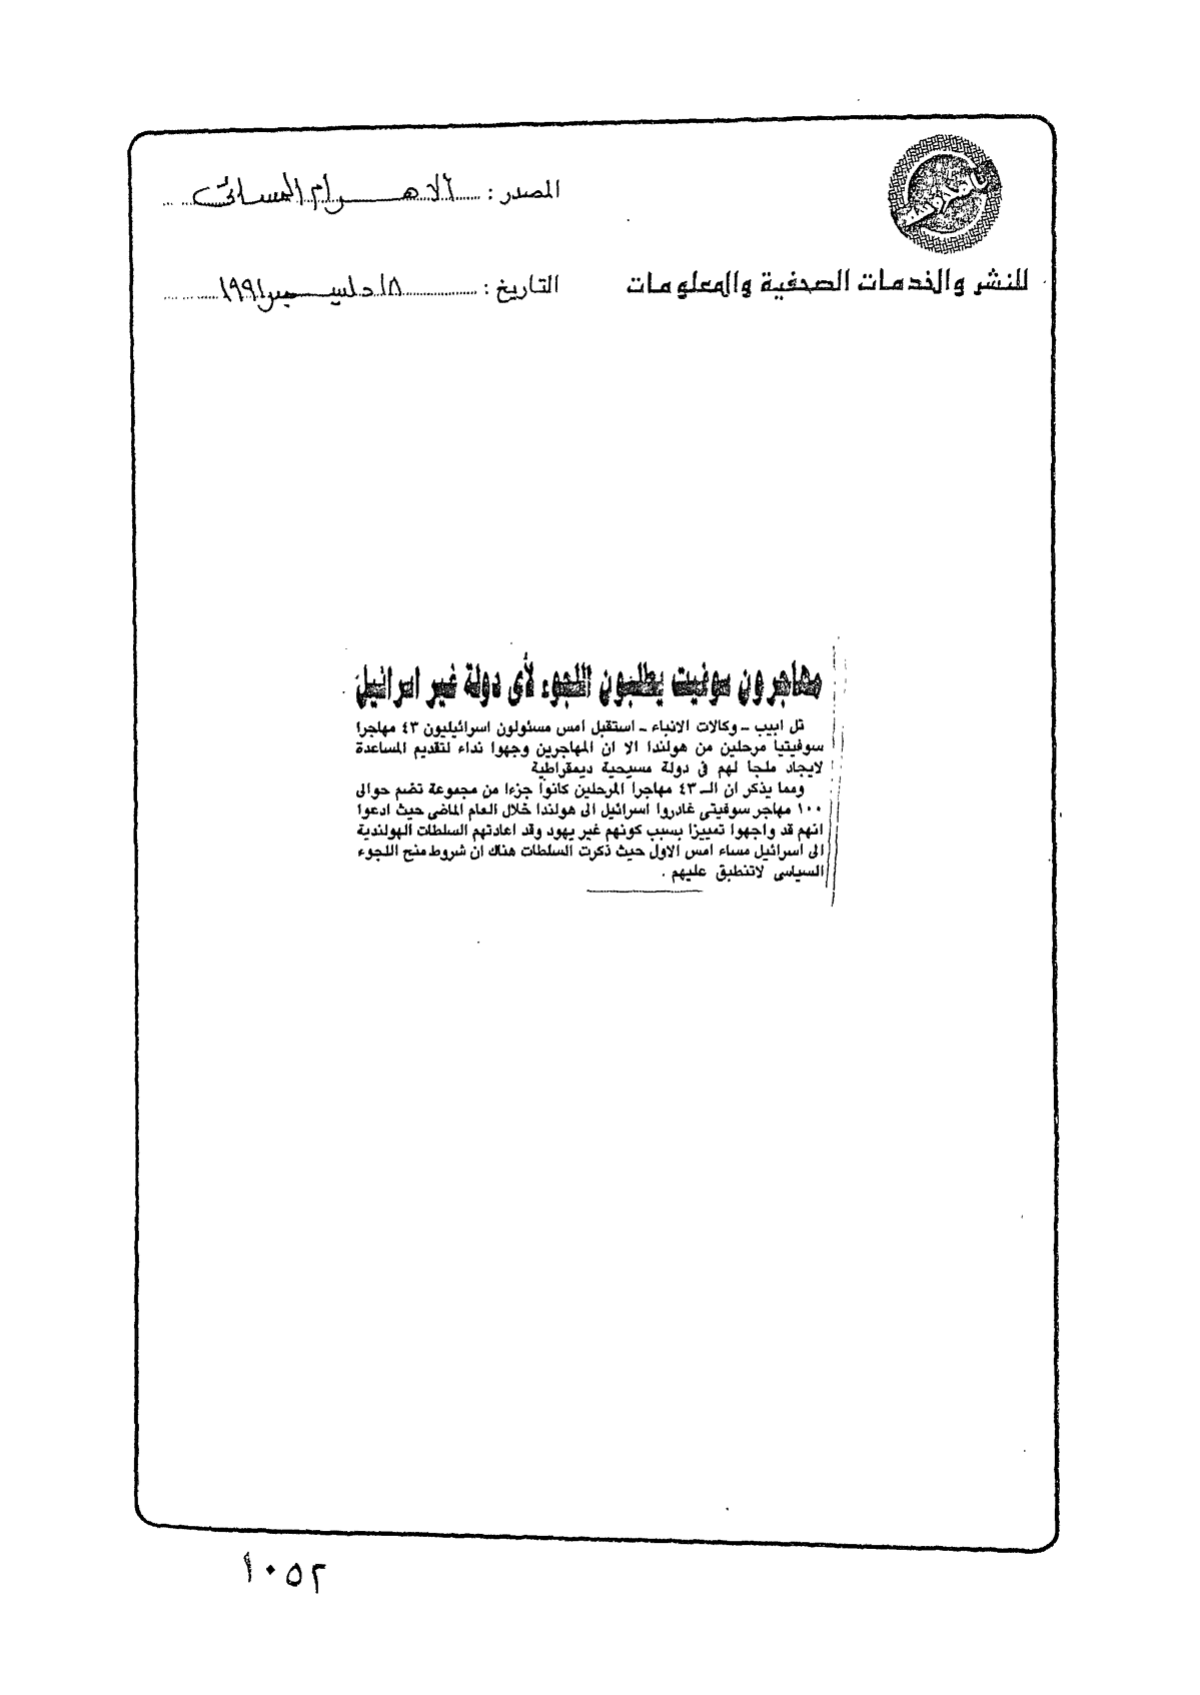 المصدر : الاهرام المسائى
للنشر والخدمات الصحفية والمعلومات
التاريخ : ١٨ ديسمبر ١٩٩١
مهاجرون سوفيت يطلبون اللجوء لأى دولة غير اسرائيل
تل ابيب - وكالات الانباء - استقبل امس مسئولون اسرائيليون ٤٣ مهاجرا
سوفيتيا مرحلين من هولندا الا ان المهاجرين وجهوا نداء لتقديم المساعدة
لايجاد ملجا لهم فى دولة مسيحية ديمقراطية
ومما يذكر ان الـ ٤٣ مهاجرا المرحلين كانوا جزءا من مجموعة تضم حوالى
١٠٠ مهاجر سوفيتى غادروا اسرائيل الى هولندا خلال العام الماضى حيث ادعوا
انهم قد واجهوا تمييزا بسبب كونهم غير يهود وقد اعادتهم السلطات الهولندية
الى اسرائيل مساء امس الاول حيث ذكرت السلطات هناك ان شروط منح اللجوء
السياسى لاتنطبق عليهم .
١٠٥٢